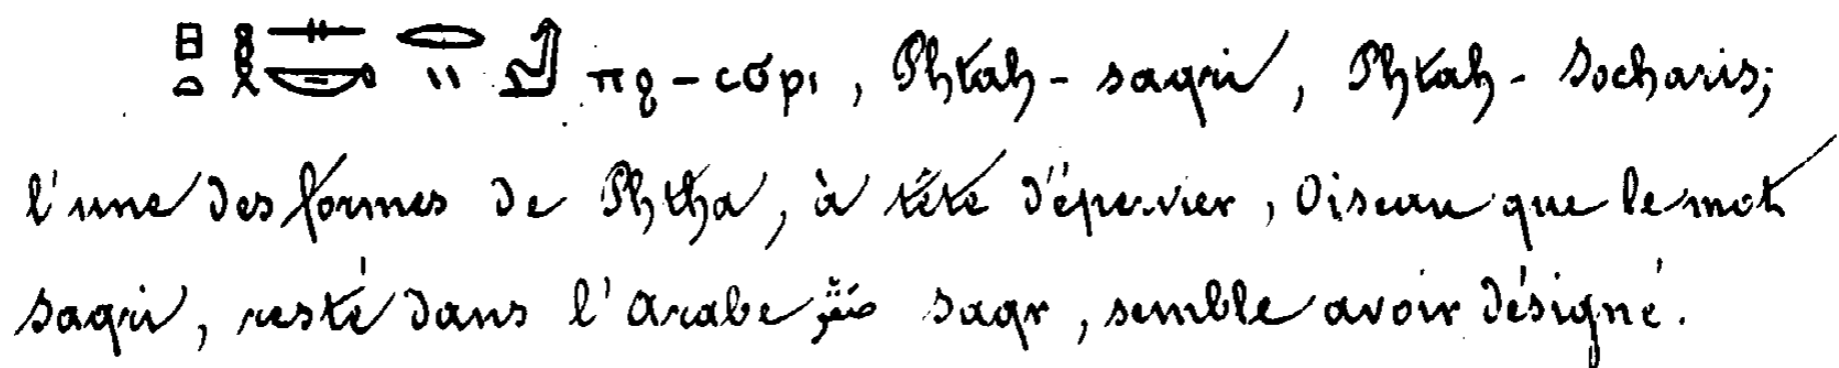 ⲡϩ-ⲥϭⲣⲓ, Phtah-saqri, Phtah-Socharis;
l'une des formes de Phtha, à tête d'épervier, Oiseau que le mot
saqri, resté dans l'arabe صقر saqr, semble avoir désigné.